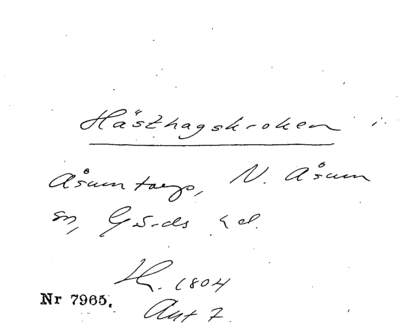 Hästhagskroken
Åsumtorp, N. Åsum
sn, Gärds hd.
H. 1804
Nr 7965.
Akt 7